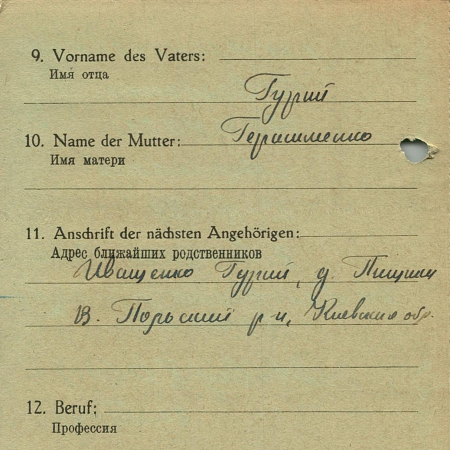 9. Vorname des Vaters:
Имя отца
Гурий
10. Name der Mutter: Герашченко
Имя матери
11. Anschrift der nächsten Angehörigen:
Адрес ближайших родственников
Иващенко Гурий, д.
В. р-н, Киевская обл.
12. Beruf:
Профессия